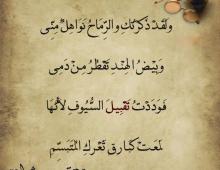 ولقد ذكرتك والرماح نواهل منى
وبيض الهند تقطر من دمى
فوددت تقبيل السيوف لأنها
لمعت كبارق ثغرك المتبسم